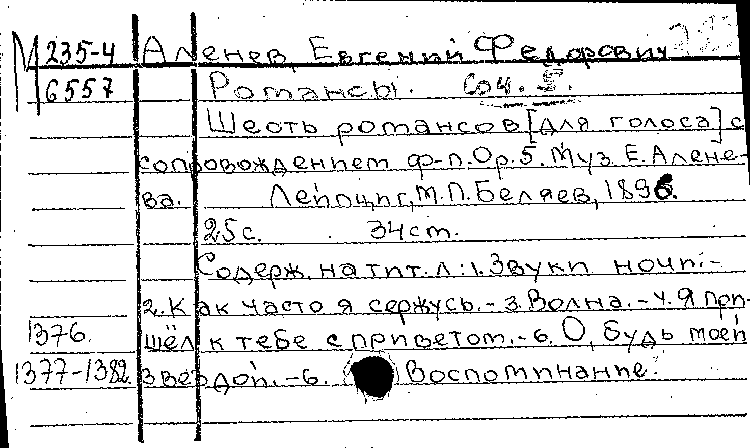 М 235-4 Аленев, Евгений Федорович
6557 Романсы. Соч. 5.
Шесть романсов [для голоса] с
сопровождением ф-п. Ор. 5. Муз. Е. Алене-
ва. Лейпциг, М.П. Беляев, 1896.
25с. 34cm.
Содерж. на тит. л.: 1. Звуки ночи. -
2. Как часто я сержусь. - 3. Волна. - 4. Я при-
1376. шёл к тебе с приветом. - 6. О, будь моей
1377-1382 звездой. - 6. Воспоминание.